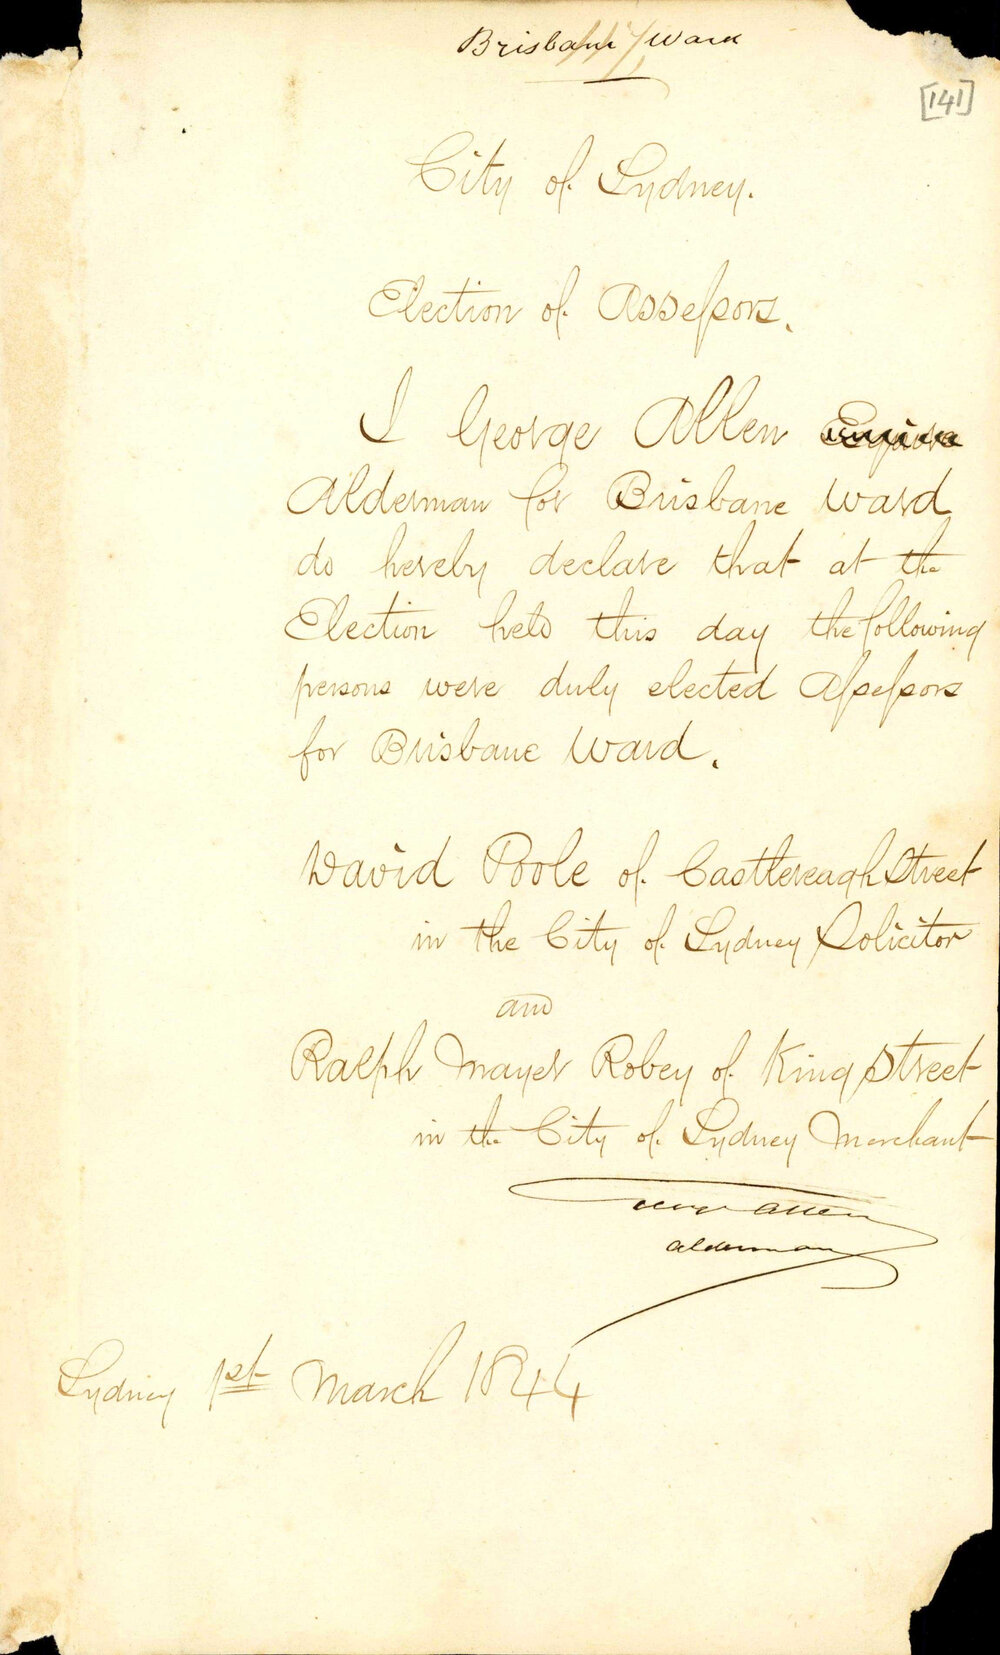 Brisbane Ward
[141]
City of Sydney.
Election of Assessors.
I George Allen Esquire
Alderman for Brisbane Ward
do hereby declare that at the
Election held this day the following
persons were duly elected Assessors
for Brisbane Ward.
David Poole of Castlereagh Street
in the City of Sydney Solicitor
and
Ralph Mayer Robey of King Street
in the City of Sydney Merchant
George Allen
Alderman
Sydney 1st March 1844